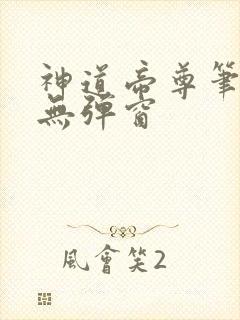 神道帝尊筆
無彈窗
風會笑2